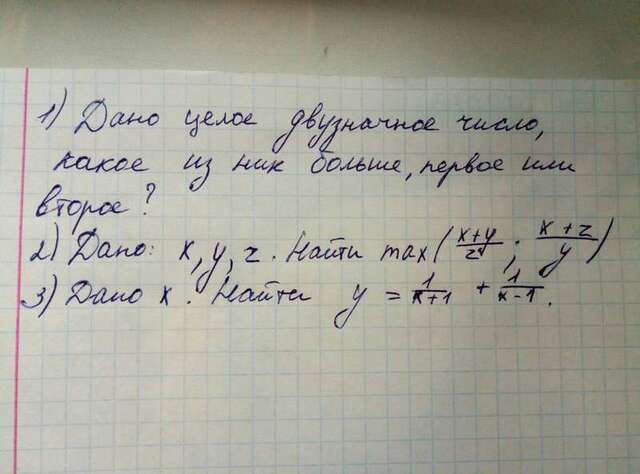 1) Дано целое двузначное число,
какое из них больше, первое или
второе?
2) Дано: x, y, z. Найти max(x+y/z; x+z/y)
3) Дано x. Найти y = 1/x+1 + 1/x-1.